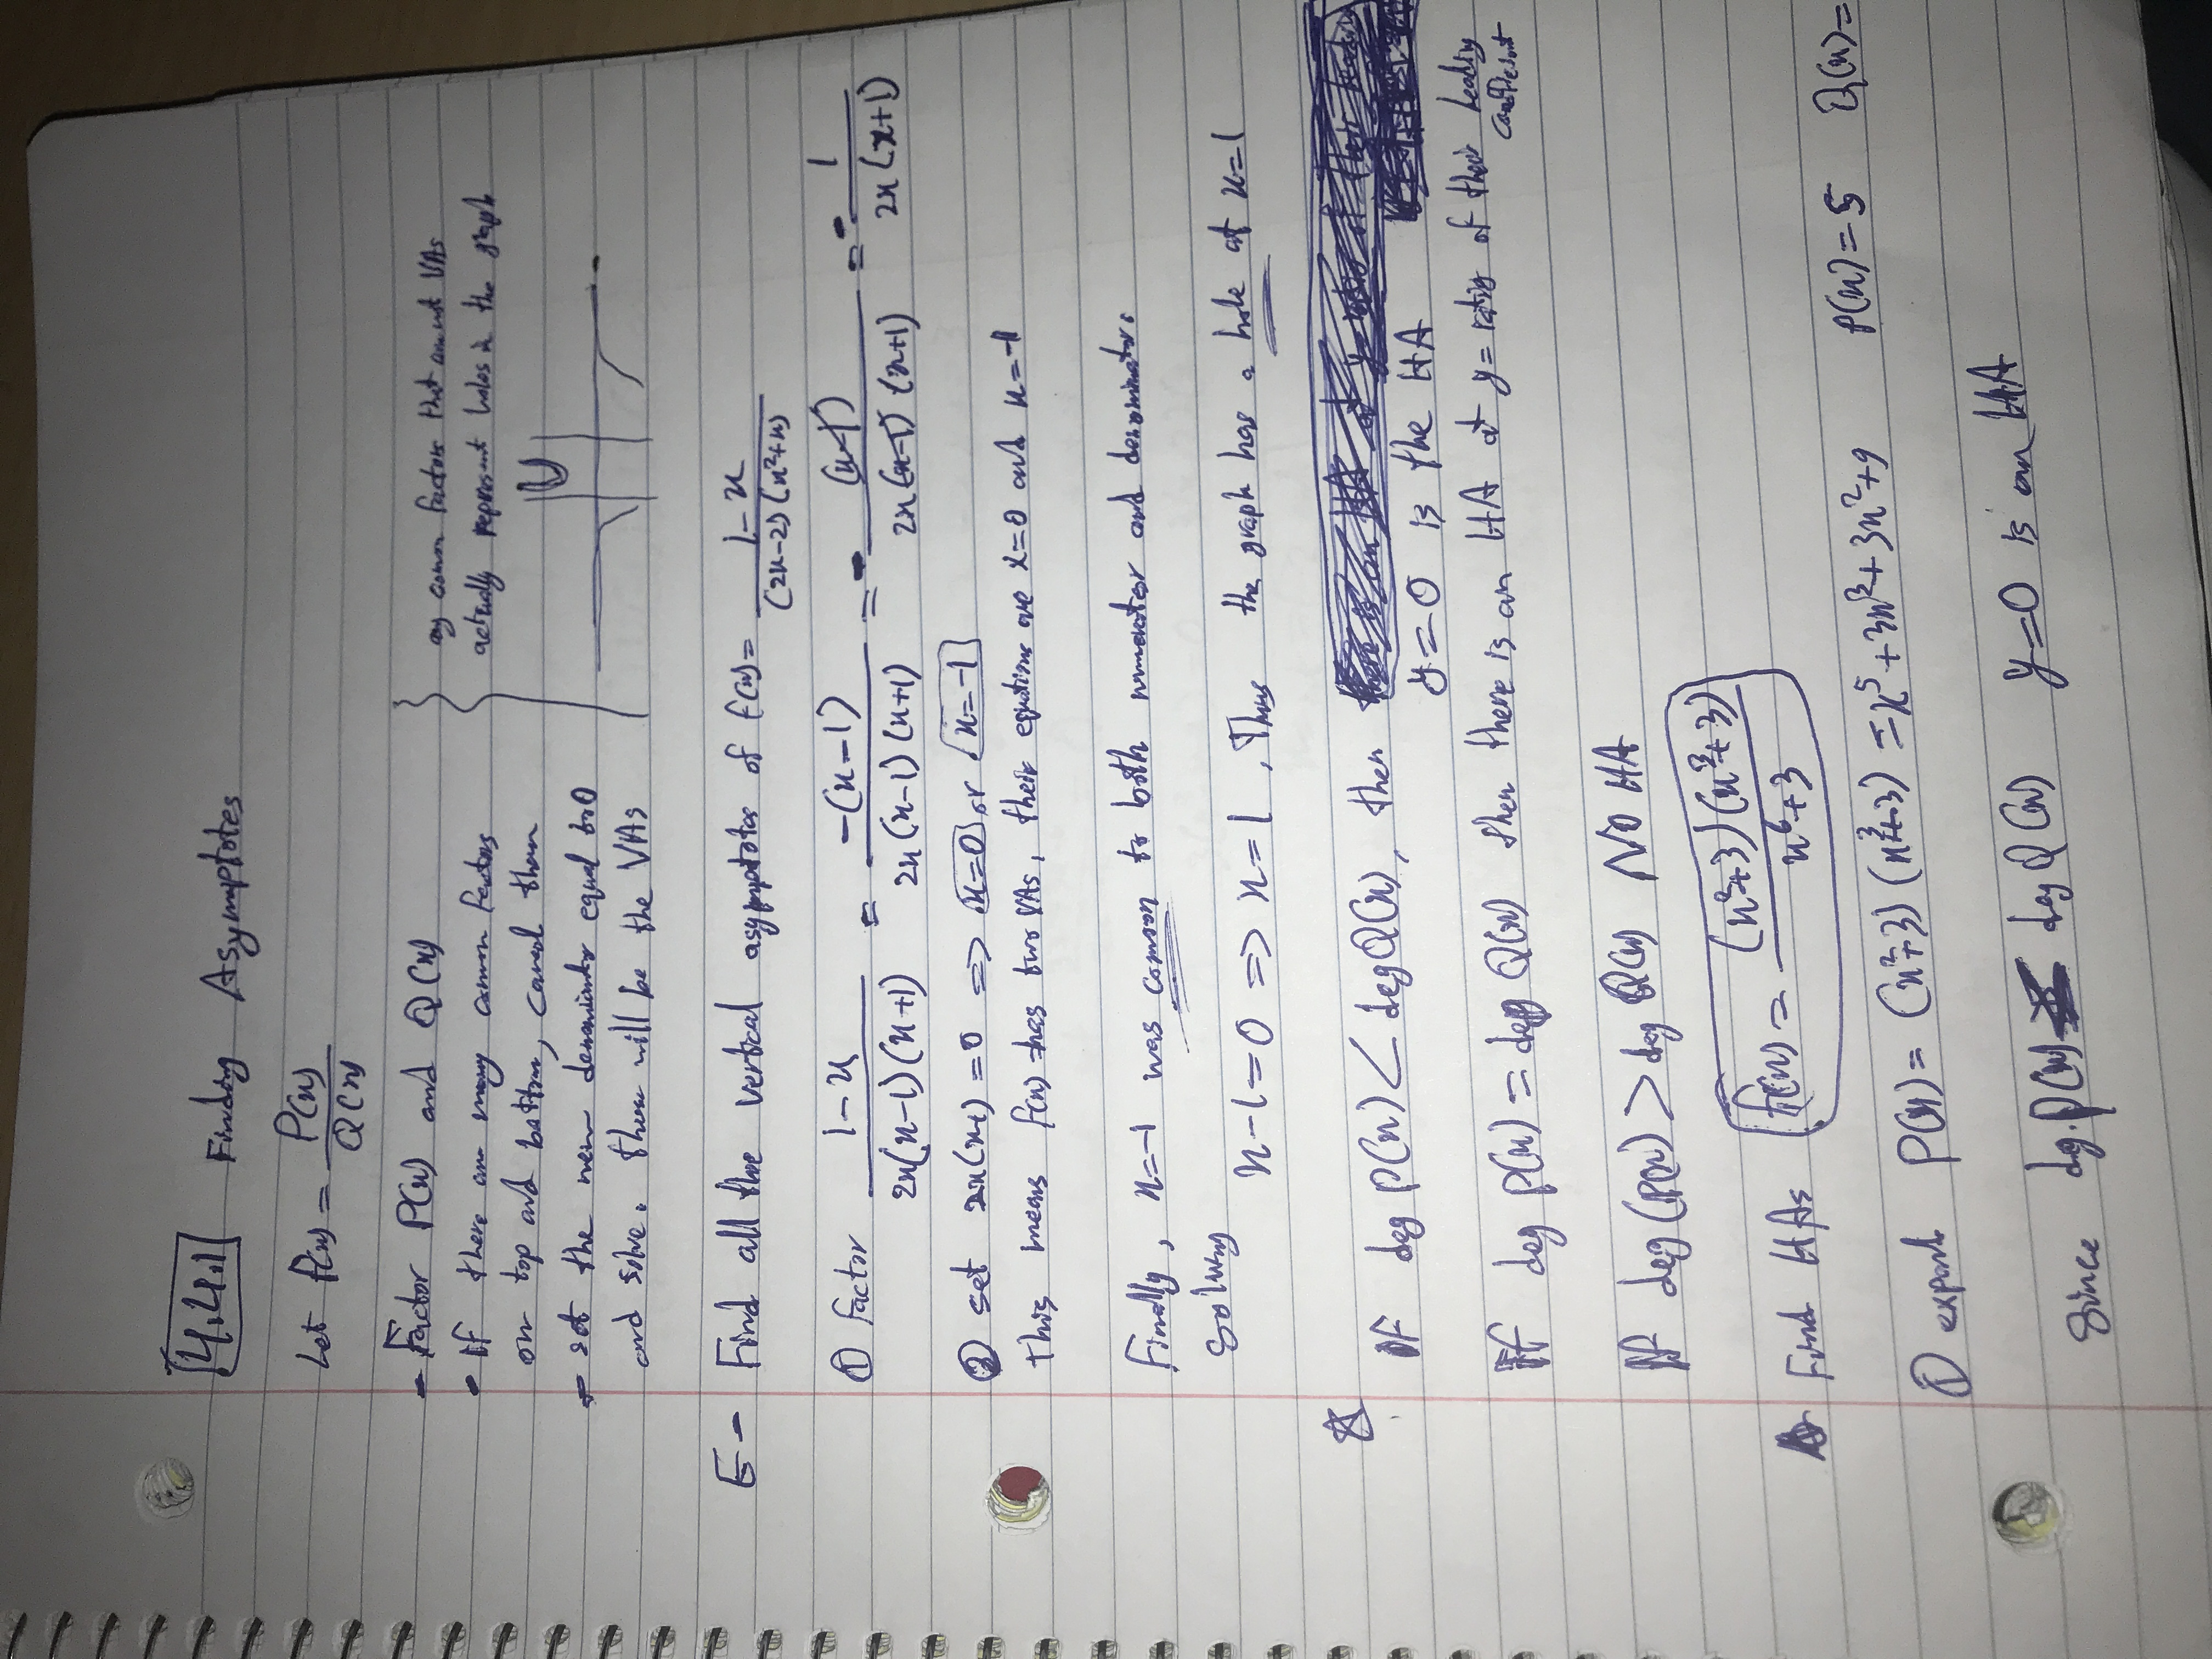 4.4.1 Finding Asymptotes
Let f(x) = P(x)/Q(x)
- Factor P(x) and Q(x) } any common factors that aren't VAs
• If there are many common factors actually represent holes in the graph
on top and bottom, cancel them
- set the new denominator equal to 0
and solve. these will be the VAs
E - Find all the vertical asymptotes of f(x) = (1-x)/((2x-2)(x²+x))
① Factor (1-x)/(2x(x-1)(x+1)) = -(x-1)/(2x(x-1)(x+1)) = -(x-1)/(2x(x-1)(x+1)) = -1/(2x(x+1))
② set 2x(x+1) = 0 => x=0 or x=-1
This means f(x) has two VAs, their equations are x=0 and x=-1
Finally, x=-1 was common to both numerator and denominator.
Solving x-1=0 => x=1, Thus the graph has a hole at x=1
☆ IF deg P(x) < deg Q(x), then
y=0 is the HA
IF deg P(x) = deg Q(x) then there is an HA at y= ratio of their leading coefficient
IF deg(P(x)) > deg Q(x) No HA
Find HAs f(x) = (x²+3)(x³+3)/(x⁶+3)
① expand P(x) = (x²+3)(x³+3) = x⁵+3x³+3x²+9 P(x)=5 Q(x)=
Since deg. P(x) < deg Q(x) y=0 is an HA